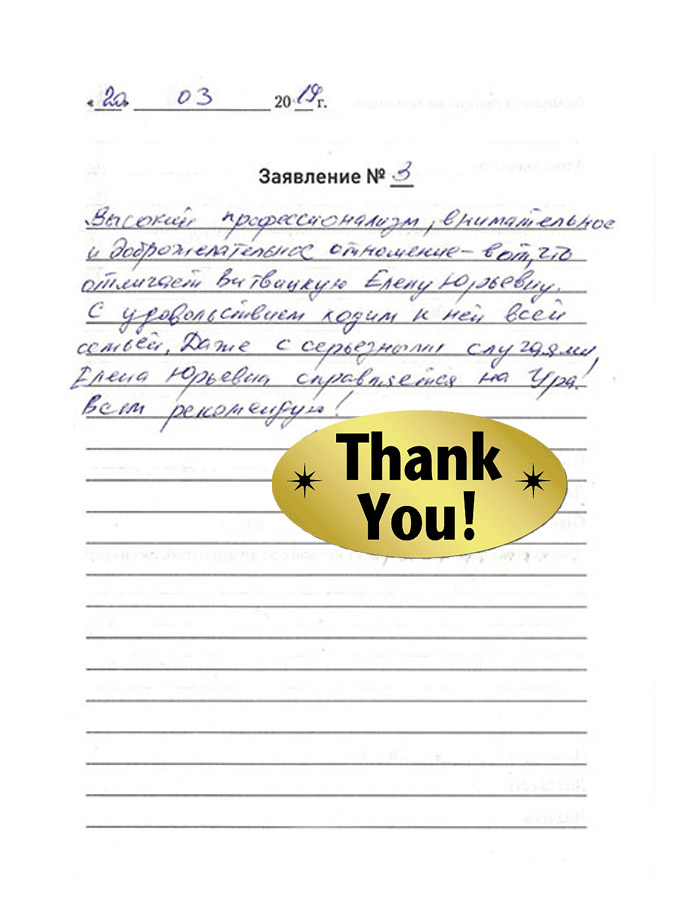 «20» 03 2019 г.
Заявление № 3
Высокий профессионализм, внимательное
и доброжелательное отношение – вот, что
отличает Витвицкую Елену Юрьевну.
С удовольствием ходим к ней всей
семьёй. Даже с серьезными случаями,
Елена Юрьевна справляется на Ура.
Всем рекомендую!
Thank
You!